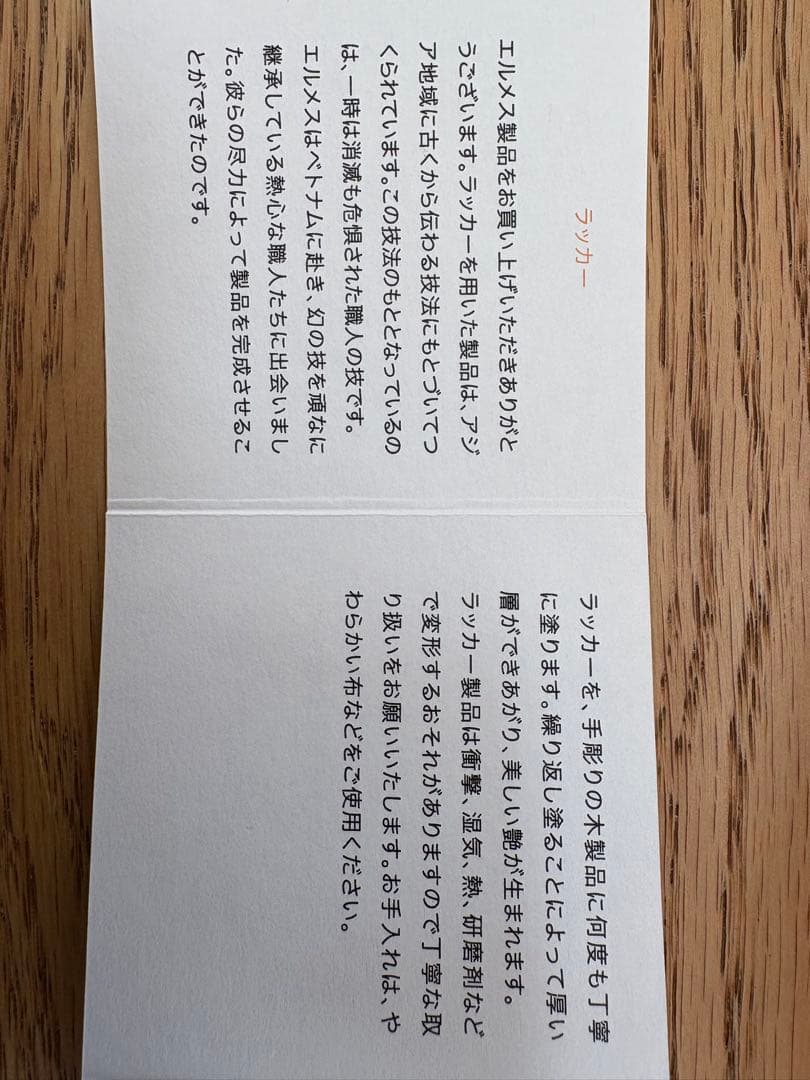 ラッカー
エルメス製品をお買い上げいただきありがと
うございます。ラッカーを用いた製品は、アジ
ア地域に古くから伝わる技法にもとづいてつ
くられています。この技法のもととなっているの
は、一時は消滅も危惧された職人の技です。
エルメスはベトナムに赴き、幻の技を頑なに
継承している熱心な職人たちに出会いまし
た。彼らの尽力によって製品を完成させるこ
とができたのです。
ラッカーを、手彫りの木製品に何度も丁寧
に塗ります。繰り返し塗ることによって厚い
層ができあがり、美しい艶が生まれます。
ラッカー製品は衝撃、湿気、熱、研磨剤など
で変形するおそれがありますので丁寧な取
り扱いをお願いいたします。お手入れは、や
わらかい布などをご使用ください。